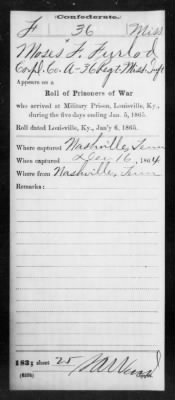 Confederate.
F 36 Miss
Moses F. Furlod
Corpl. Co. A-36 Regt Miss. Inft
Appears on a
Roll of Prisoners of War
who arrived at Military Prison, Louisville, Ky.,
during the five days ending Jan. 5, 1865.
Roll dated Louisville, Ky., Jan'y 6, 1865.
Where captured Nashville, Tenn
When captured Dec 16, 1864
Where from Nashville, Tenn
Remarks:
sheet 25
Copyist.